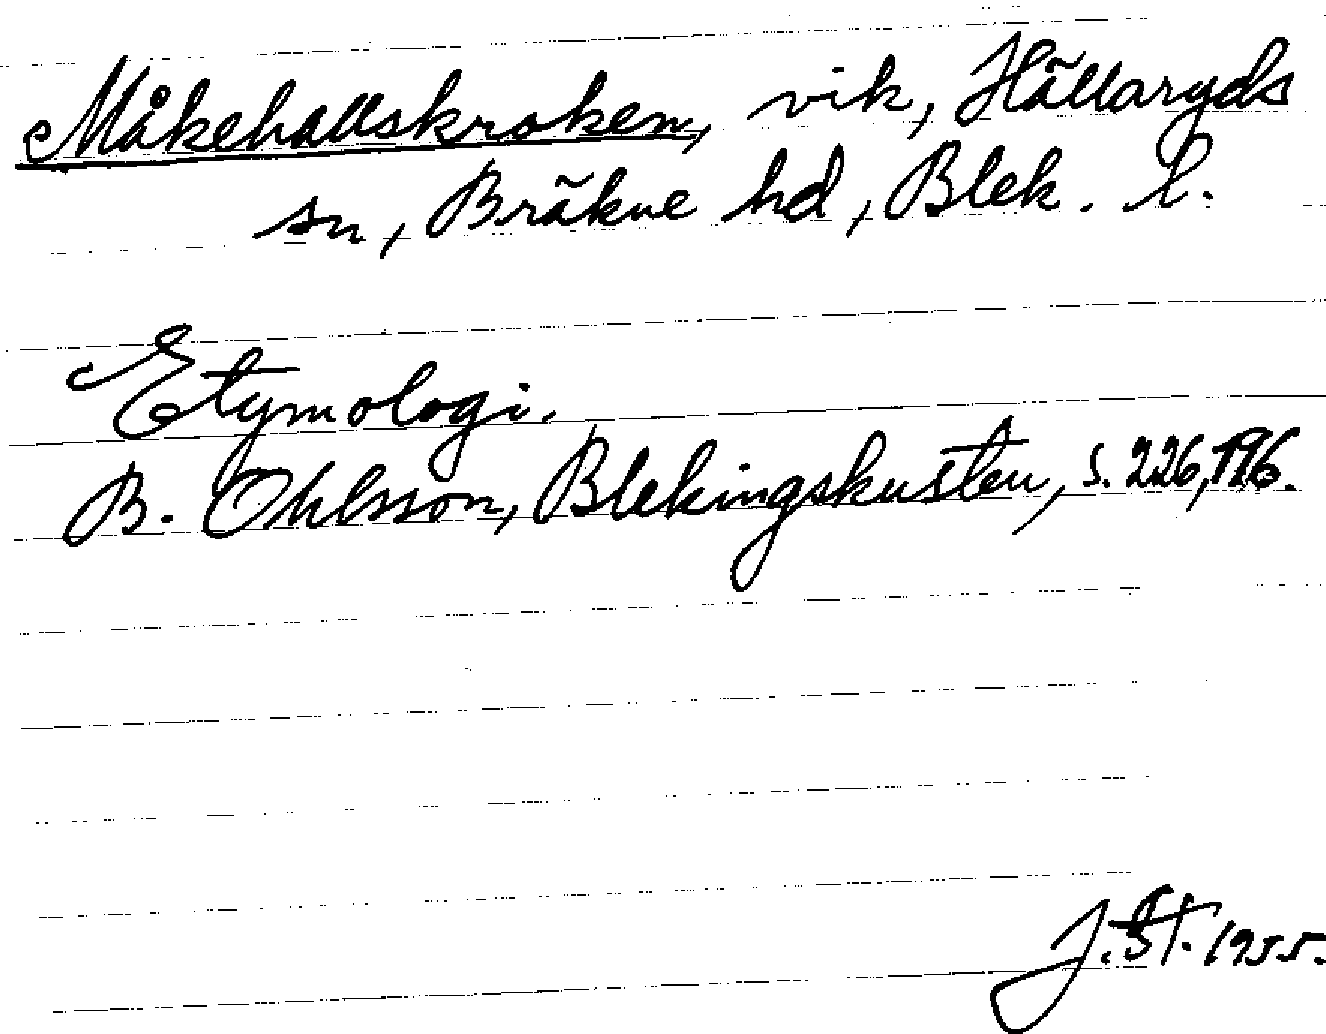 Måkehallskroken, vik, Hällaryds
sn, Bräkne hd, Blek. l.
Etymologi.
B. Ohlsson, Blekingskusten, s. 226, 196.
J. St. 1955.